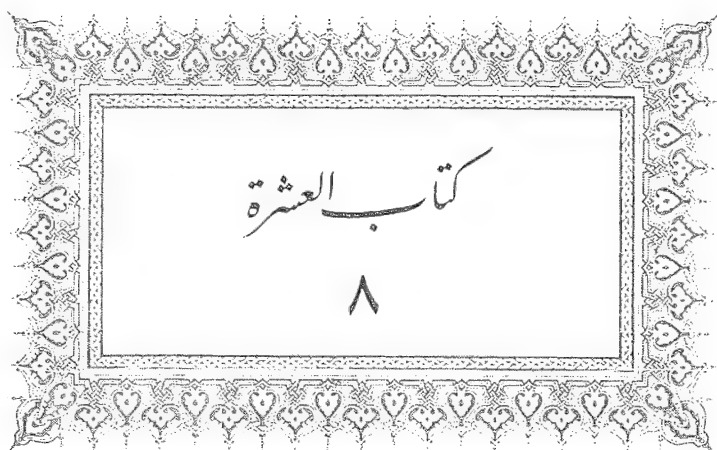 كتاب العشرة
٨